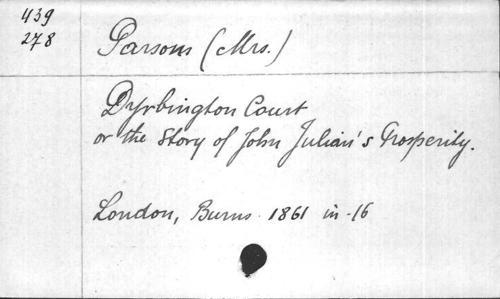 439
278
Parsons (Mrs.)
Dyrbington Court
or the Story of John Julian's Prosperity.
London, Burns 1861 in-16